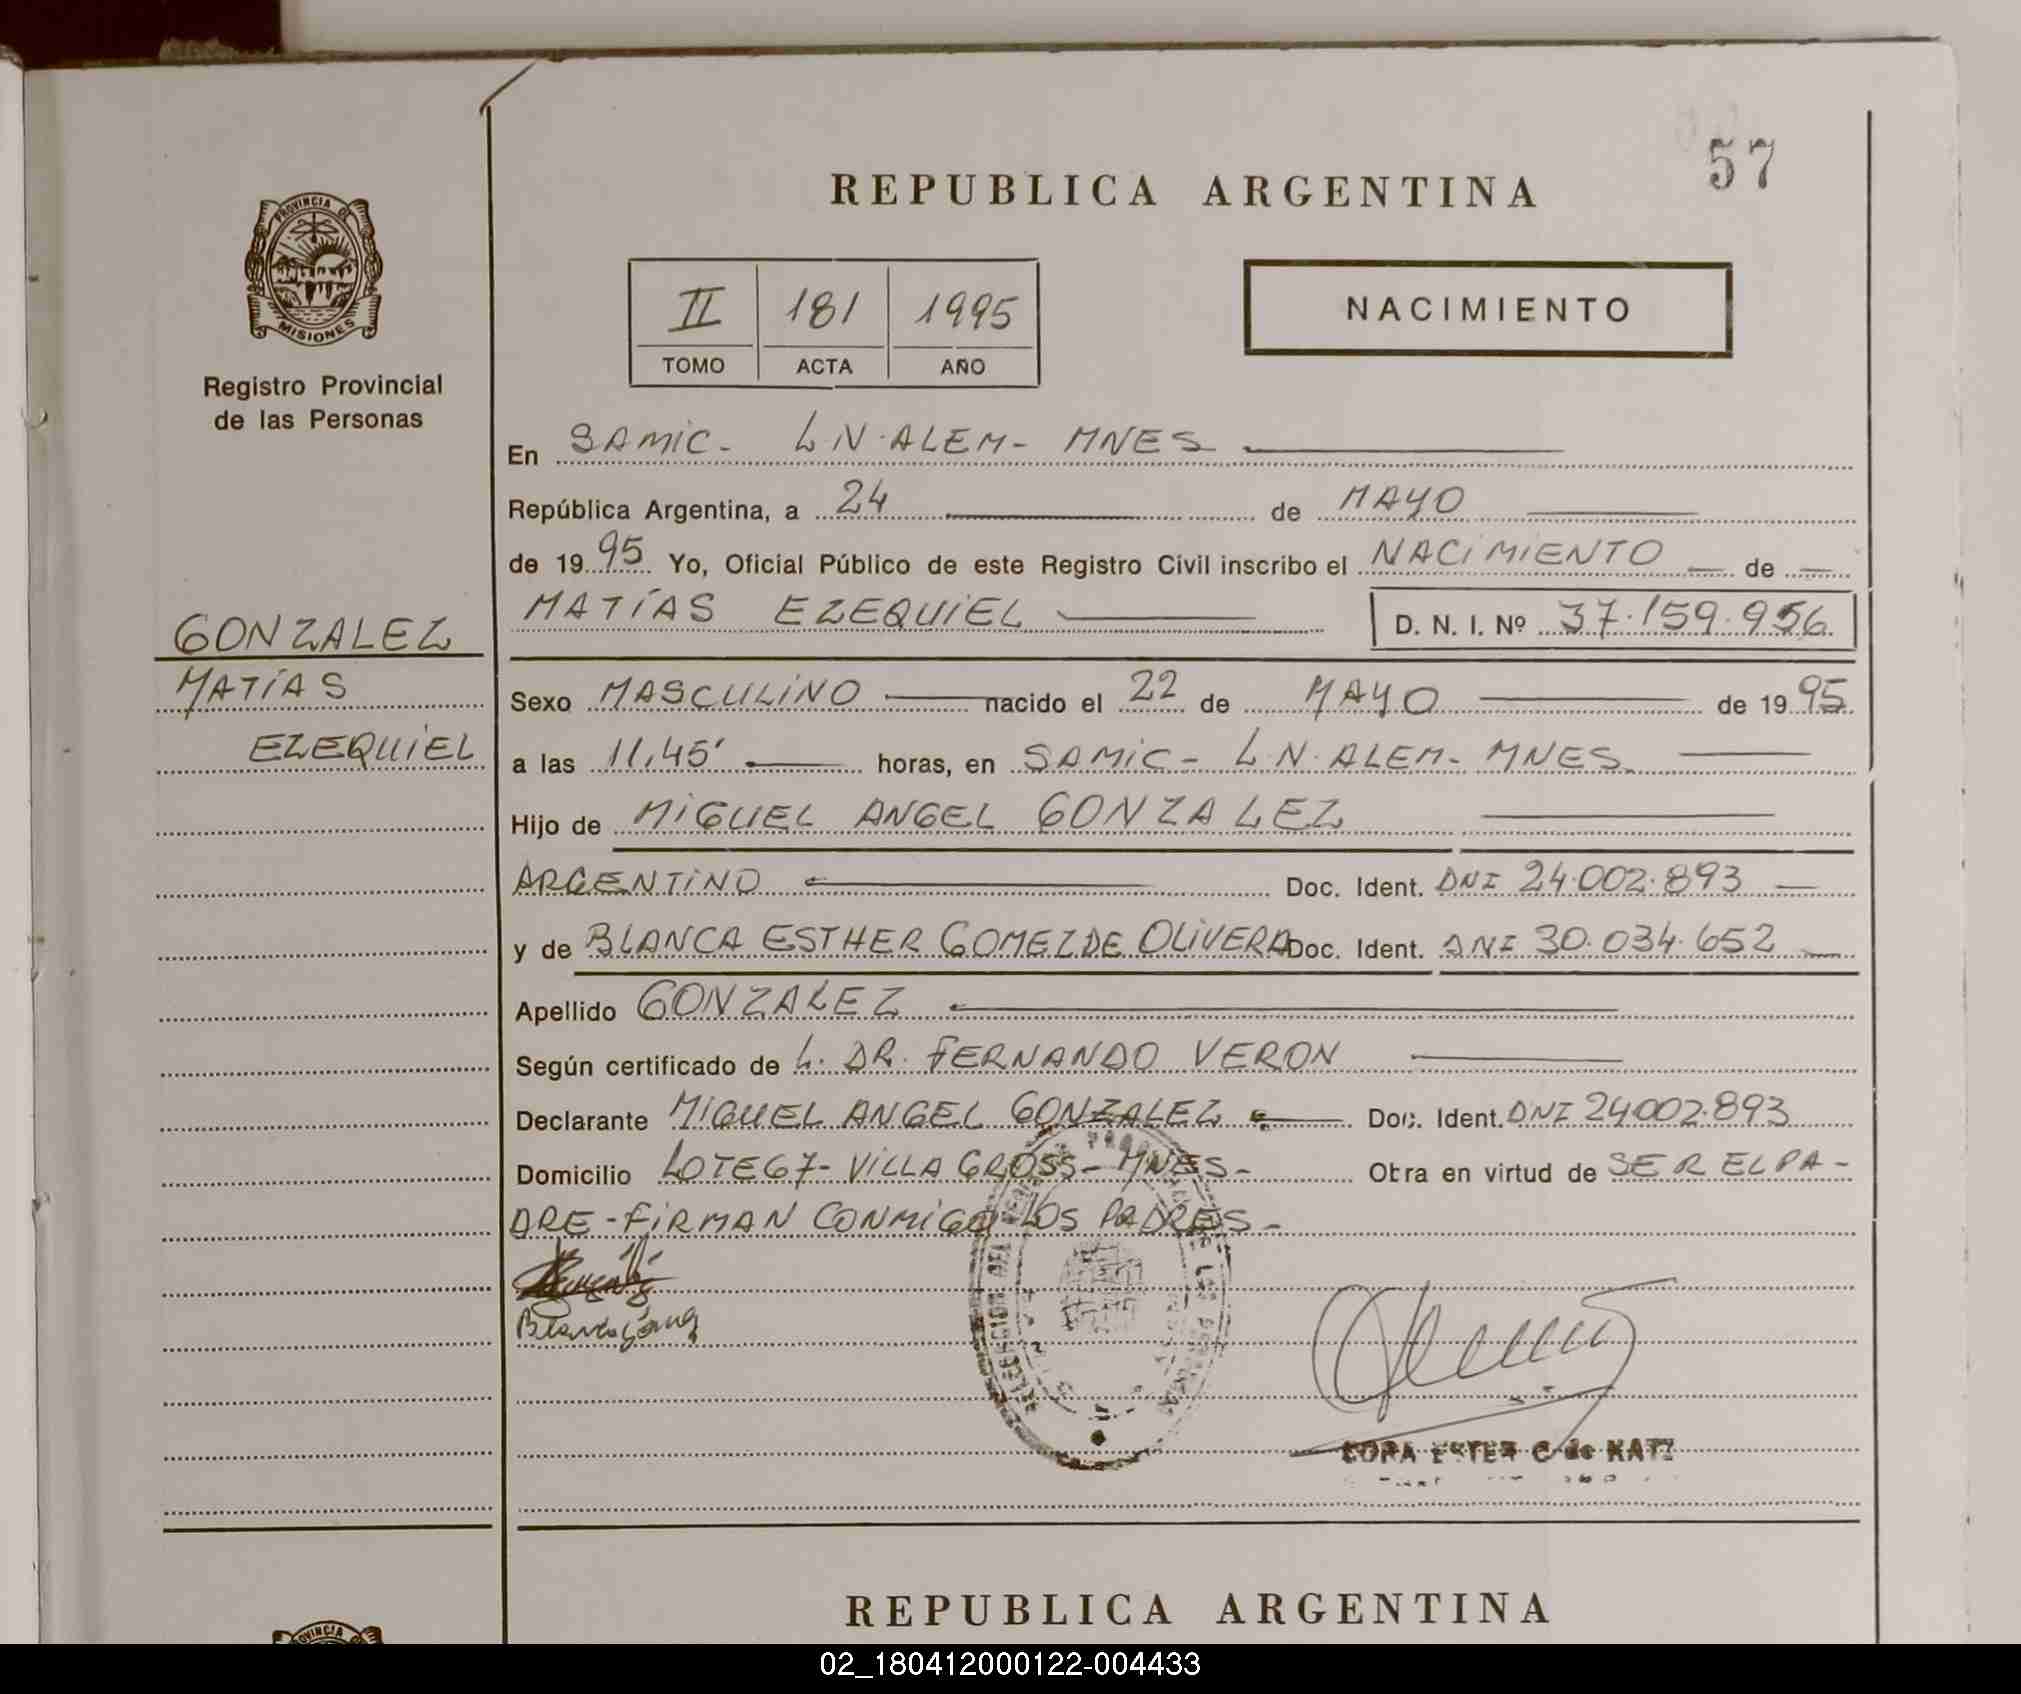 57
REPUBLICA ARGENTINA
PROVINCIA DE
MISIONES
Registro Provincial
de las Personas
II 181 1995
TOMO ACTA AÑO
NACIMIENTO
En SAMIC- L.N. ALEM- MNES
República Argentina, a 24 de MAYO
de 1995 Yo, Oficial Público de este Registro Civil inscribo el NACIMIENTO de
MATÍAS EZEQUIEL D. N. I. Nº 37.159.956
GONZALEZ
MATÍAS
EZEQUIEL
Sexo MASCULINO nacido el 22 de MAYO de 1995
a las 11,45' horas, en SAMIC- L.N. ALEM- MNES
Hijo de MIGUEL ANGEL GONZALEZ
ARGENTINO Doc. Ident. DNI 24.002.893
y de BLANCA ESTHER GOMEZ DE OLIVERA Doc. Ident. DNI 30.034.652
Apellido GONZALEZ
Según certificado de L. DR. FERNANDO VERON
Declarante MIGUEL ANGEL GONZALEZ Doc. Ident. DNI 24.002.893
Domicilio LOTE 67- VILLA GROSS- MNES- Obra en virtud de SER EL PA-
DRE - FIRMAN CONMIGO LOS PADRES-
ESTER C de KATZ
REPUBLICA ARGENTINA
PROVINCIA DE
02_180412000122-004433